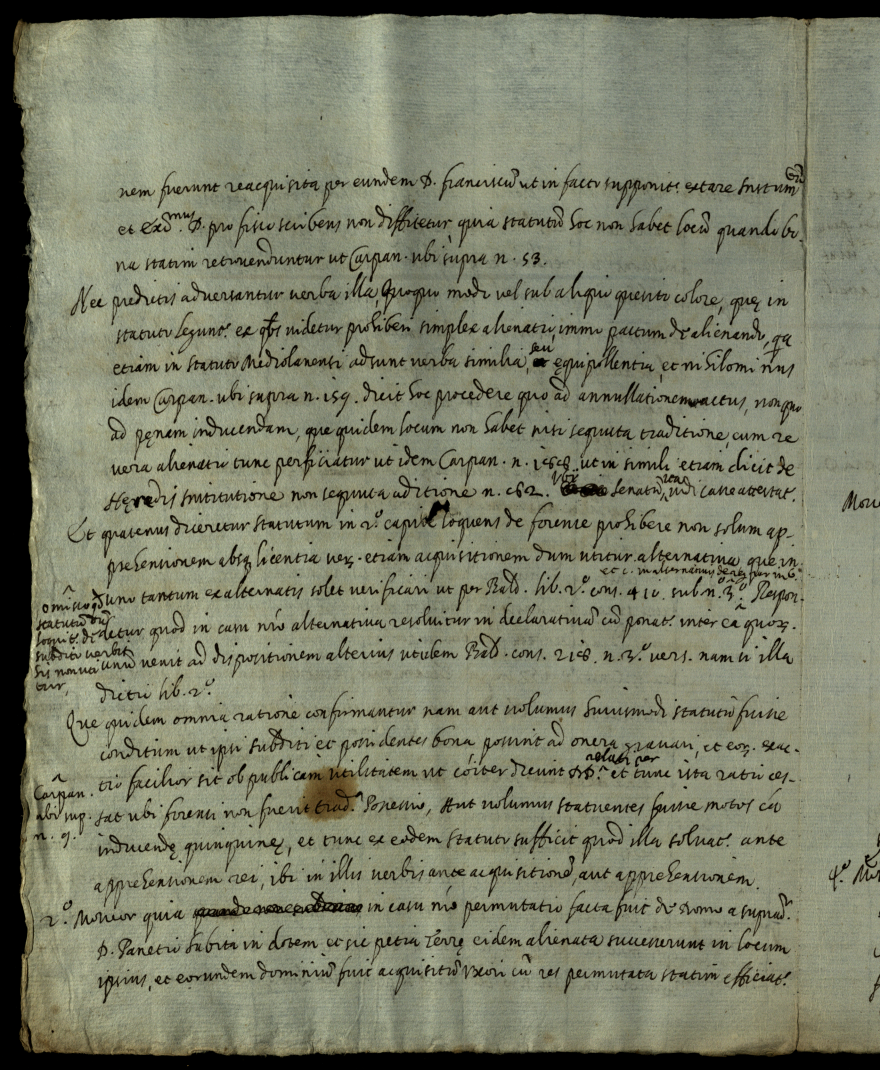 nem fuerunt reacquisita per eundem D. franciscũ ut in facto supponit.r extare Instrum
et Exc.mus D. pro fisco scribens non diffitetur quia statutũ hoc non habet locũ quando bo-
na statim retrovenduntur ut Carpan. ubi supra n. 53.
Nec predictis adversantur verba illa, Quoquo modo vel sub aliquo quesito colore, quę in
statuto legunt.r ex qbs videtur prohiberi simplex alienatio, immo pactum de alienando, qa
etiam in statuto Mediolanensi adsunt verba similia, seu ęquipollentia, et nihilominus
idem Carpan. ubi supra n. 159. dicit hoc procedere quo ad annullationem actus, non quo
ad pęnam inducendam, que quidem locum non habet nisi sequuta traditione, cum re
vera alienatio tunc perficiatur ut idem Carpan. n. ut in simili etiam dicit de
Heredis institutione non sequuta aditione n. ubi Senatũ ita iudicasse attestat.r
Et quatenus diceretur statutum in 2.o capite loquens de forense prohibere non solum ap-
prehensionem absq licentia ver. etiam acquisitionem dum utitur alternativa, que in
uno tantum ex alternatis solet verificari ut per Bald. lib. 2.o cons. 410. sub n.o 3.o Respon-
detur quod in casu nro alternativa resolvitur in declarativã cũ ponat.r inter ea quor.
unũ venit ad dispositionem alterius ut idem Bald. cons. n. 3.o vers. nam si illa
dictio lib. 2.o
omĩno qd
statutũ
loquit.r de
subdito verbis
his non uta-
tur,
Que quidem omnia ratione confirmantur nam aut volumus huiusmodi statutũ fuisse
conditum ut ipsi subditi et possidentes bona possint ad onera gravari, et eor. exac-
tio facilior sit ob publicam utilitatem ut cõiter dicunt DD. relati per et tunc ista ratio ces-
Carpan.
ubi sup.
n. 9.
sat ubi forensi non fuerit trad.a Possessio, Aut volumus statuentes fuisse motos cã
inducende quinquine, et tunc ex eodem statuto sufficit quod illa solvat.r ante
apprehensionem rei, ibi in illis verbis ante acquisitionẽ, aut apprehensionem.
2.o Moveor quia in casu nro permutatio facta fuit de Domo a suprad.
D. Panetio habita in dotem et sic petia Terrę eidem alienata successerunt in locum
ipsius, et eorundem dominiũ fuit acquisitũ uxori cũ res permutata statim efficiat.r